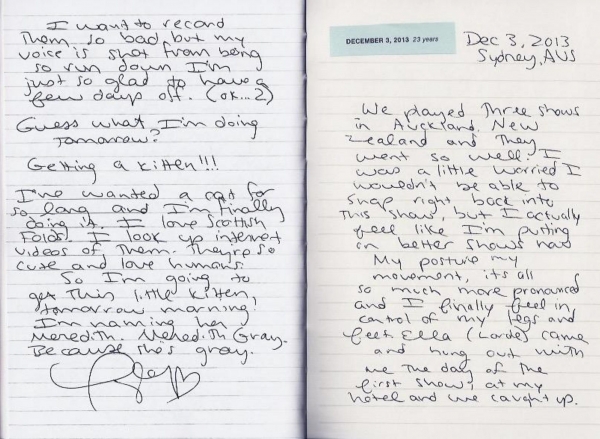 I want to record
them so bad, but my
voice is shot from being
so run down I'm
just so glad to have a
few days off. (ok...2)
Guess what I'm doing
tomorrow?
Getting a kitten!!!
I've wanted a cat for
so long and I'm finally
doing it. I love Scottish
Folds. I look up internet
videos of them. They're so
cute and love humans.
So I'm going to
get this little kitten,
tomorrow morning.
I'm naming her
Meredith. Meredith Gray.
Because she's gray.
DECEMBER 3, 2013 23 years
Dec 3, 2013
Sydney, AUS
We played three shows
in Auckland, New
Zealand and they
went so well. I
was a little worried I
wouldn't be able to
snap right back into
this show, but I actually
feel like I'm putting
on better shows now
My posture my
movement, it's all
so much more pronounced
and I finally feel in
control of my legs and
feet. Ella (Lorde) came
and hung out with
me the day of the
first show, at my
hotel and we caught up.